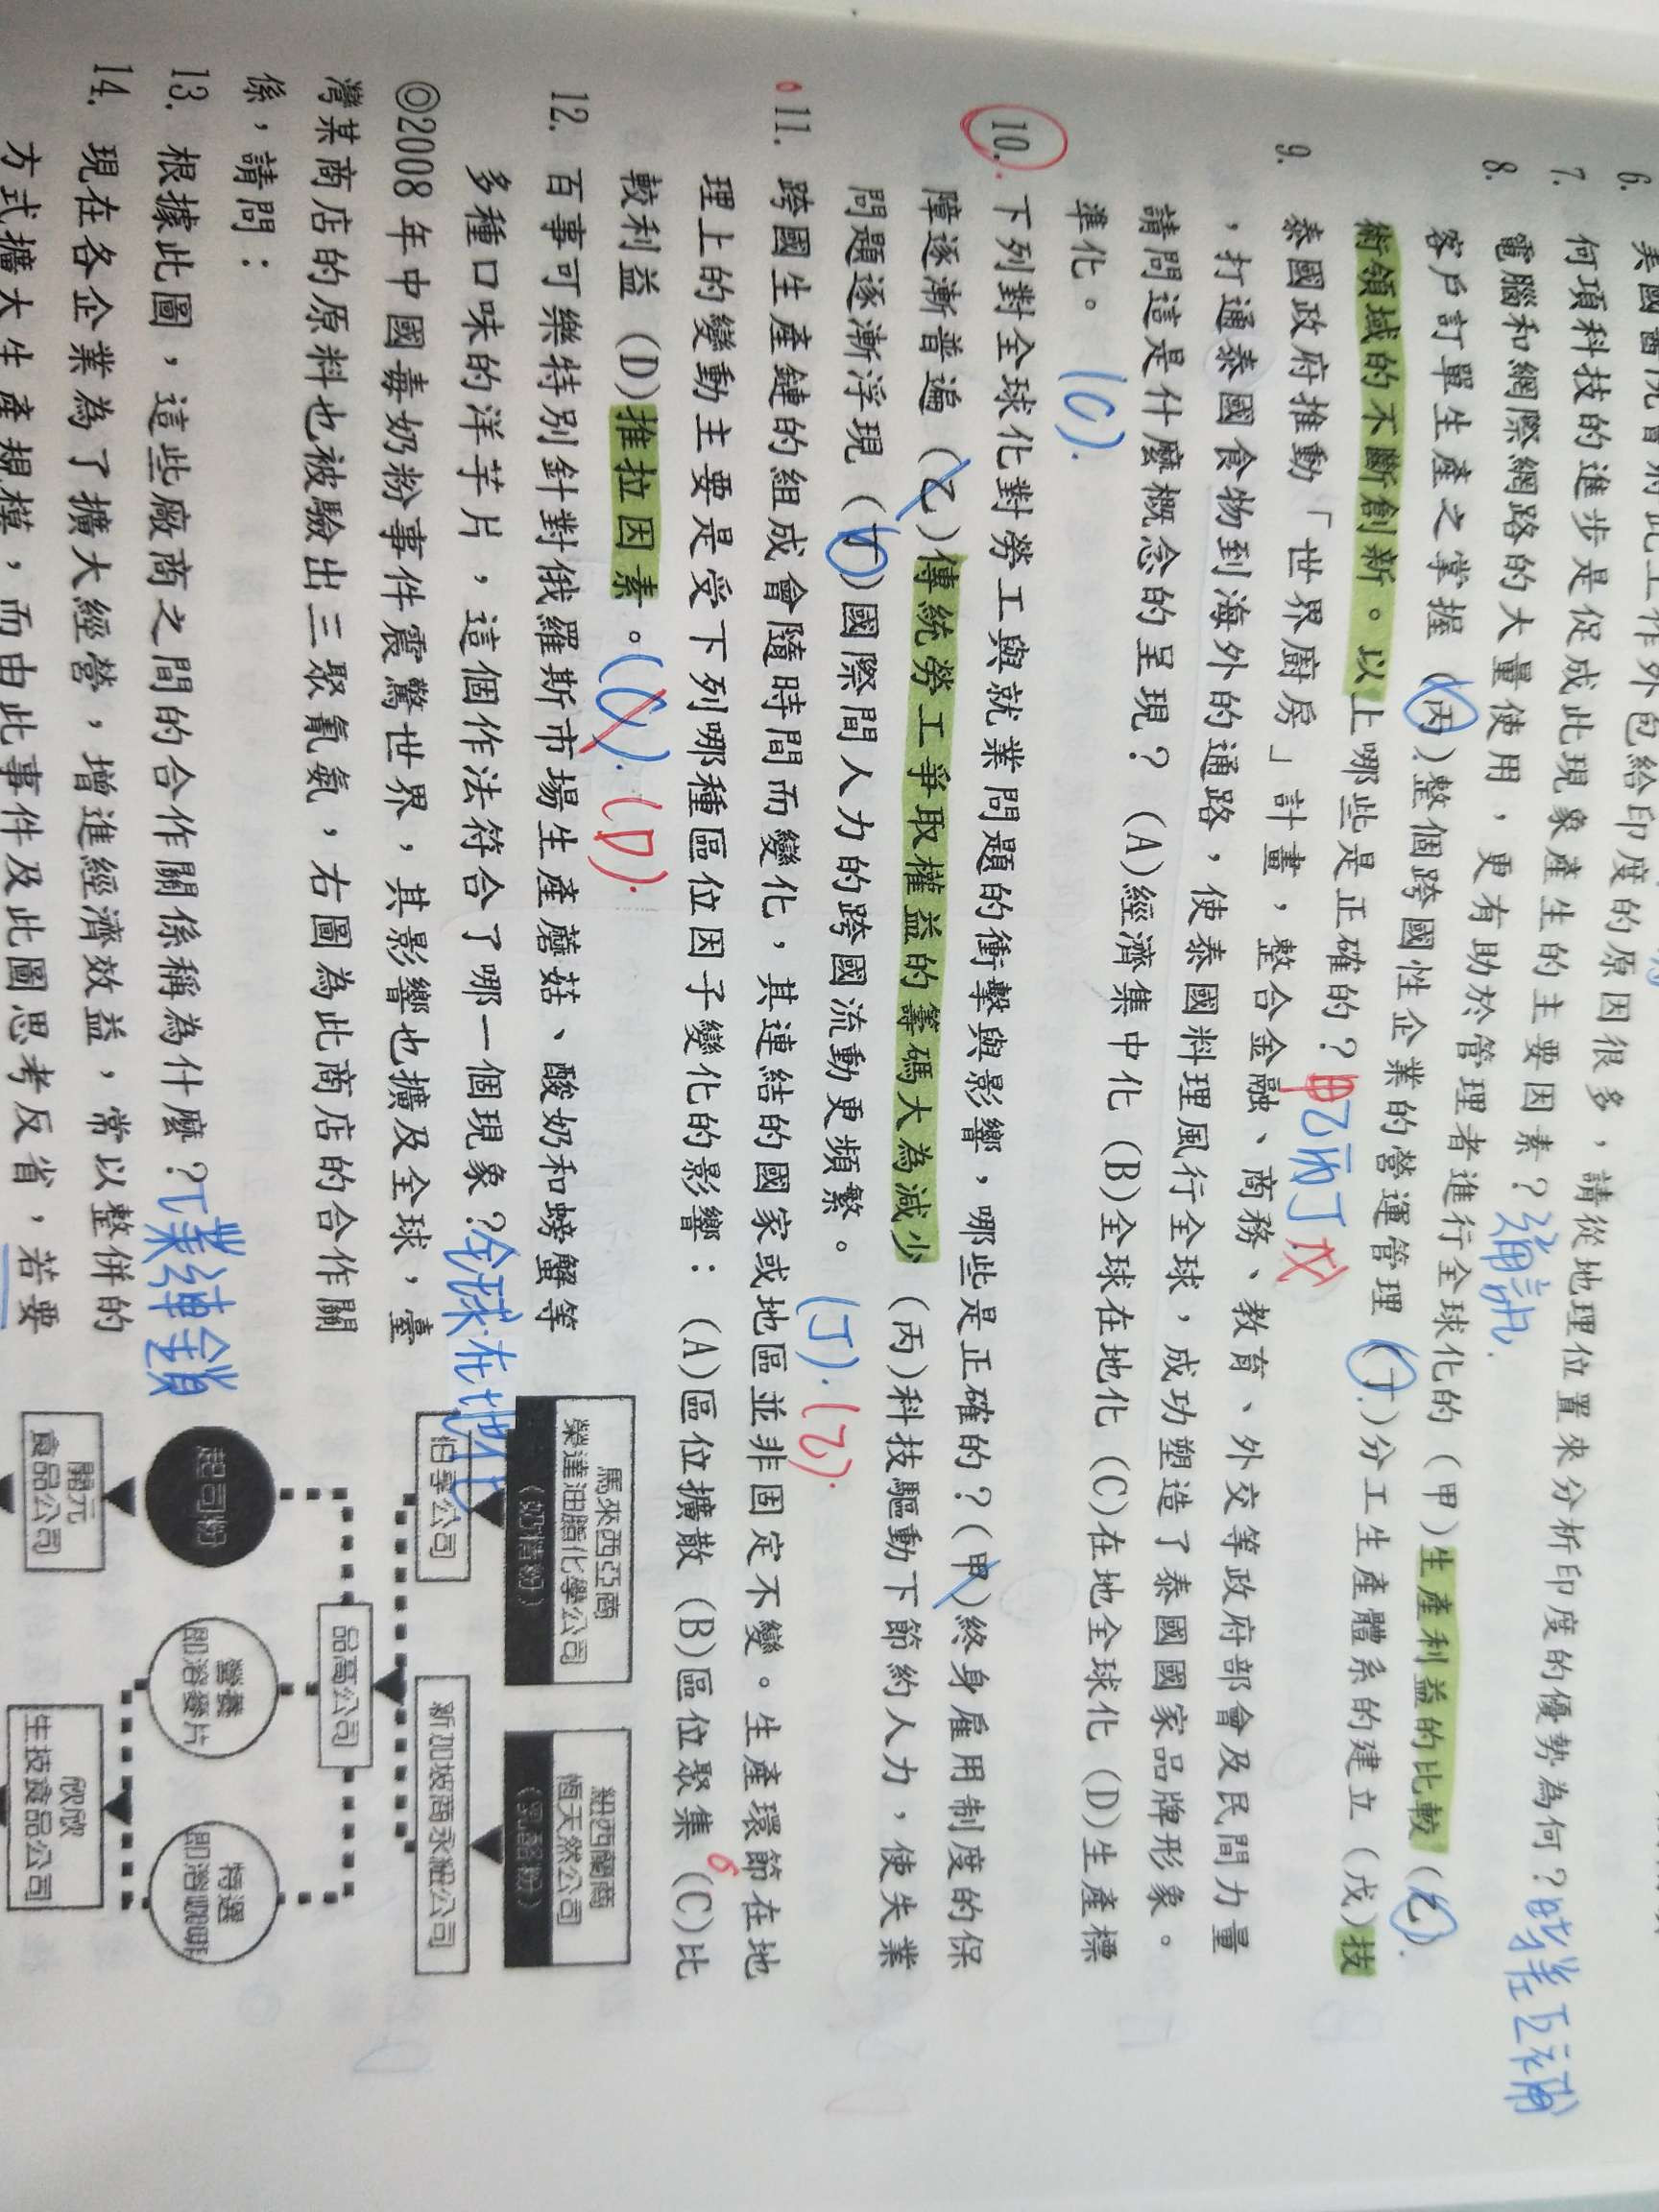 6. 美國醫院會將此工作外包給印度的原因很多，請從地理位置來分析印度的優勢為何？時差互補
7. 何項科技的進步是促成此現象產生的主要因素？通訊.
8. 電腦和網際網路的大量使用，更有助於管理者進行全球化的（甲）生產利益的比較（乙）
客戶訂單生產之掌握（丙）整個跨國性企業的營運管理（丁）分工生產體系的建立（戊）技
術領域的不斷創新。以上哪些是正確的？甲乙丙丁戊
9. 泰國政府推動「世界廚房」計畫，整合金融、商務、教育、外交等政府部會及民間力量
，打通泰國食物到海外的通路，使泰國料理風行全球，成功塑造了泰國國家品牌形象。
請問這是什麼概念的呈現？（A)經濟集中化（B)全球在地化（C)在地全球化（D)生產標
準化。(C).
10. 下列對全球化對勞工與就業問題的衝擊與影響，哪些是正確的？(甲)終身雇用制度的保
障逐漸普遍（乙）傳統勞工爭取權益的籌碼大為減少（丙)科技驅動下節約人力，使失業
問題逐漸浮現（丁）國際間人力的跨國流動更頻繁。(丁).(乙).
11. 跨國生產鏈的組成會隨時間而變化，其連結的國家或地區並非固定不變。生產環節在地
理上的變動主要是受下列哪種區位因子變化的影響：（A)區位擴散（B)區位聚集（C)比
較利益（D)推拉因素。(C).(D).
12. 百事可樂特別針對俄羅斯市場生產蘑菇、酸奶和螃蟹等
多種口味的洋芋片，這個作法符合了哪一個現象？全球在地化
◎2008 年中國毒奶粉事件震驚世界，其影響也擴及全球，臺
灣某商店的原料也被驗出三聚氰氨，右圖為此商店的合作關
係，請問：
13. 根據此圖，這些廠商之間的合作關係稱為什麼？工業連鎖
14. 現在各企業為了擴大經營，增進經濟效益，常以整併的
方式擴大生產規模，而由此事件及此圖思考反省，若要
馬來西亞商
榮達油脂化學公司
（奶精粉）
紐西蘭商
恆天然公司
佰亨公司
新加坡商永紐公司
品高公司
起司粉
營養
即溶麥片
特選
即溶咖啡
開元
食品公司
欣欣
生技食品公司